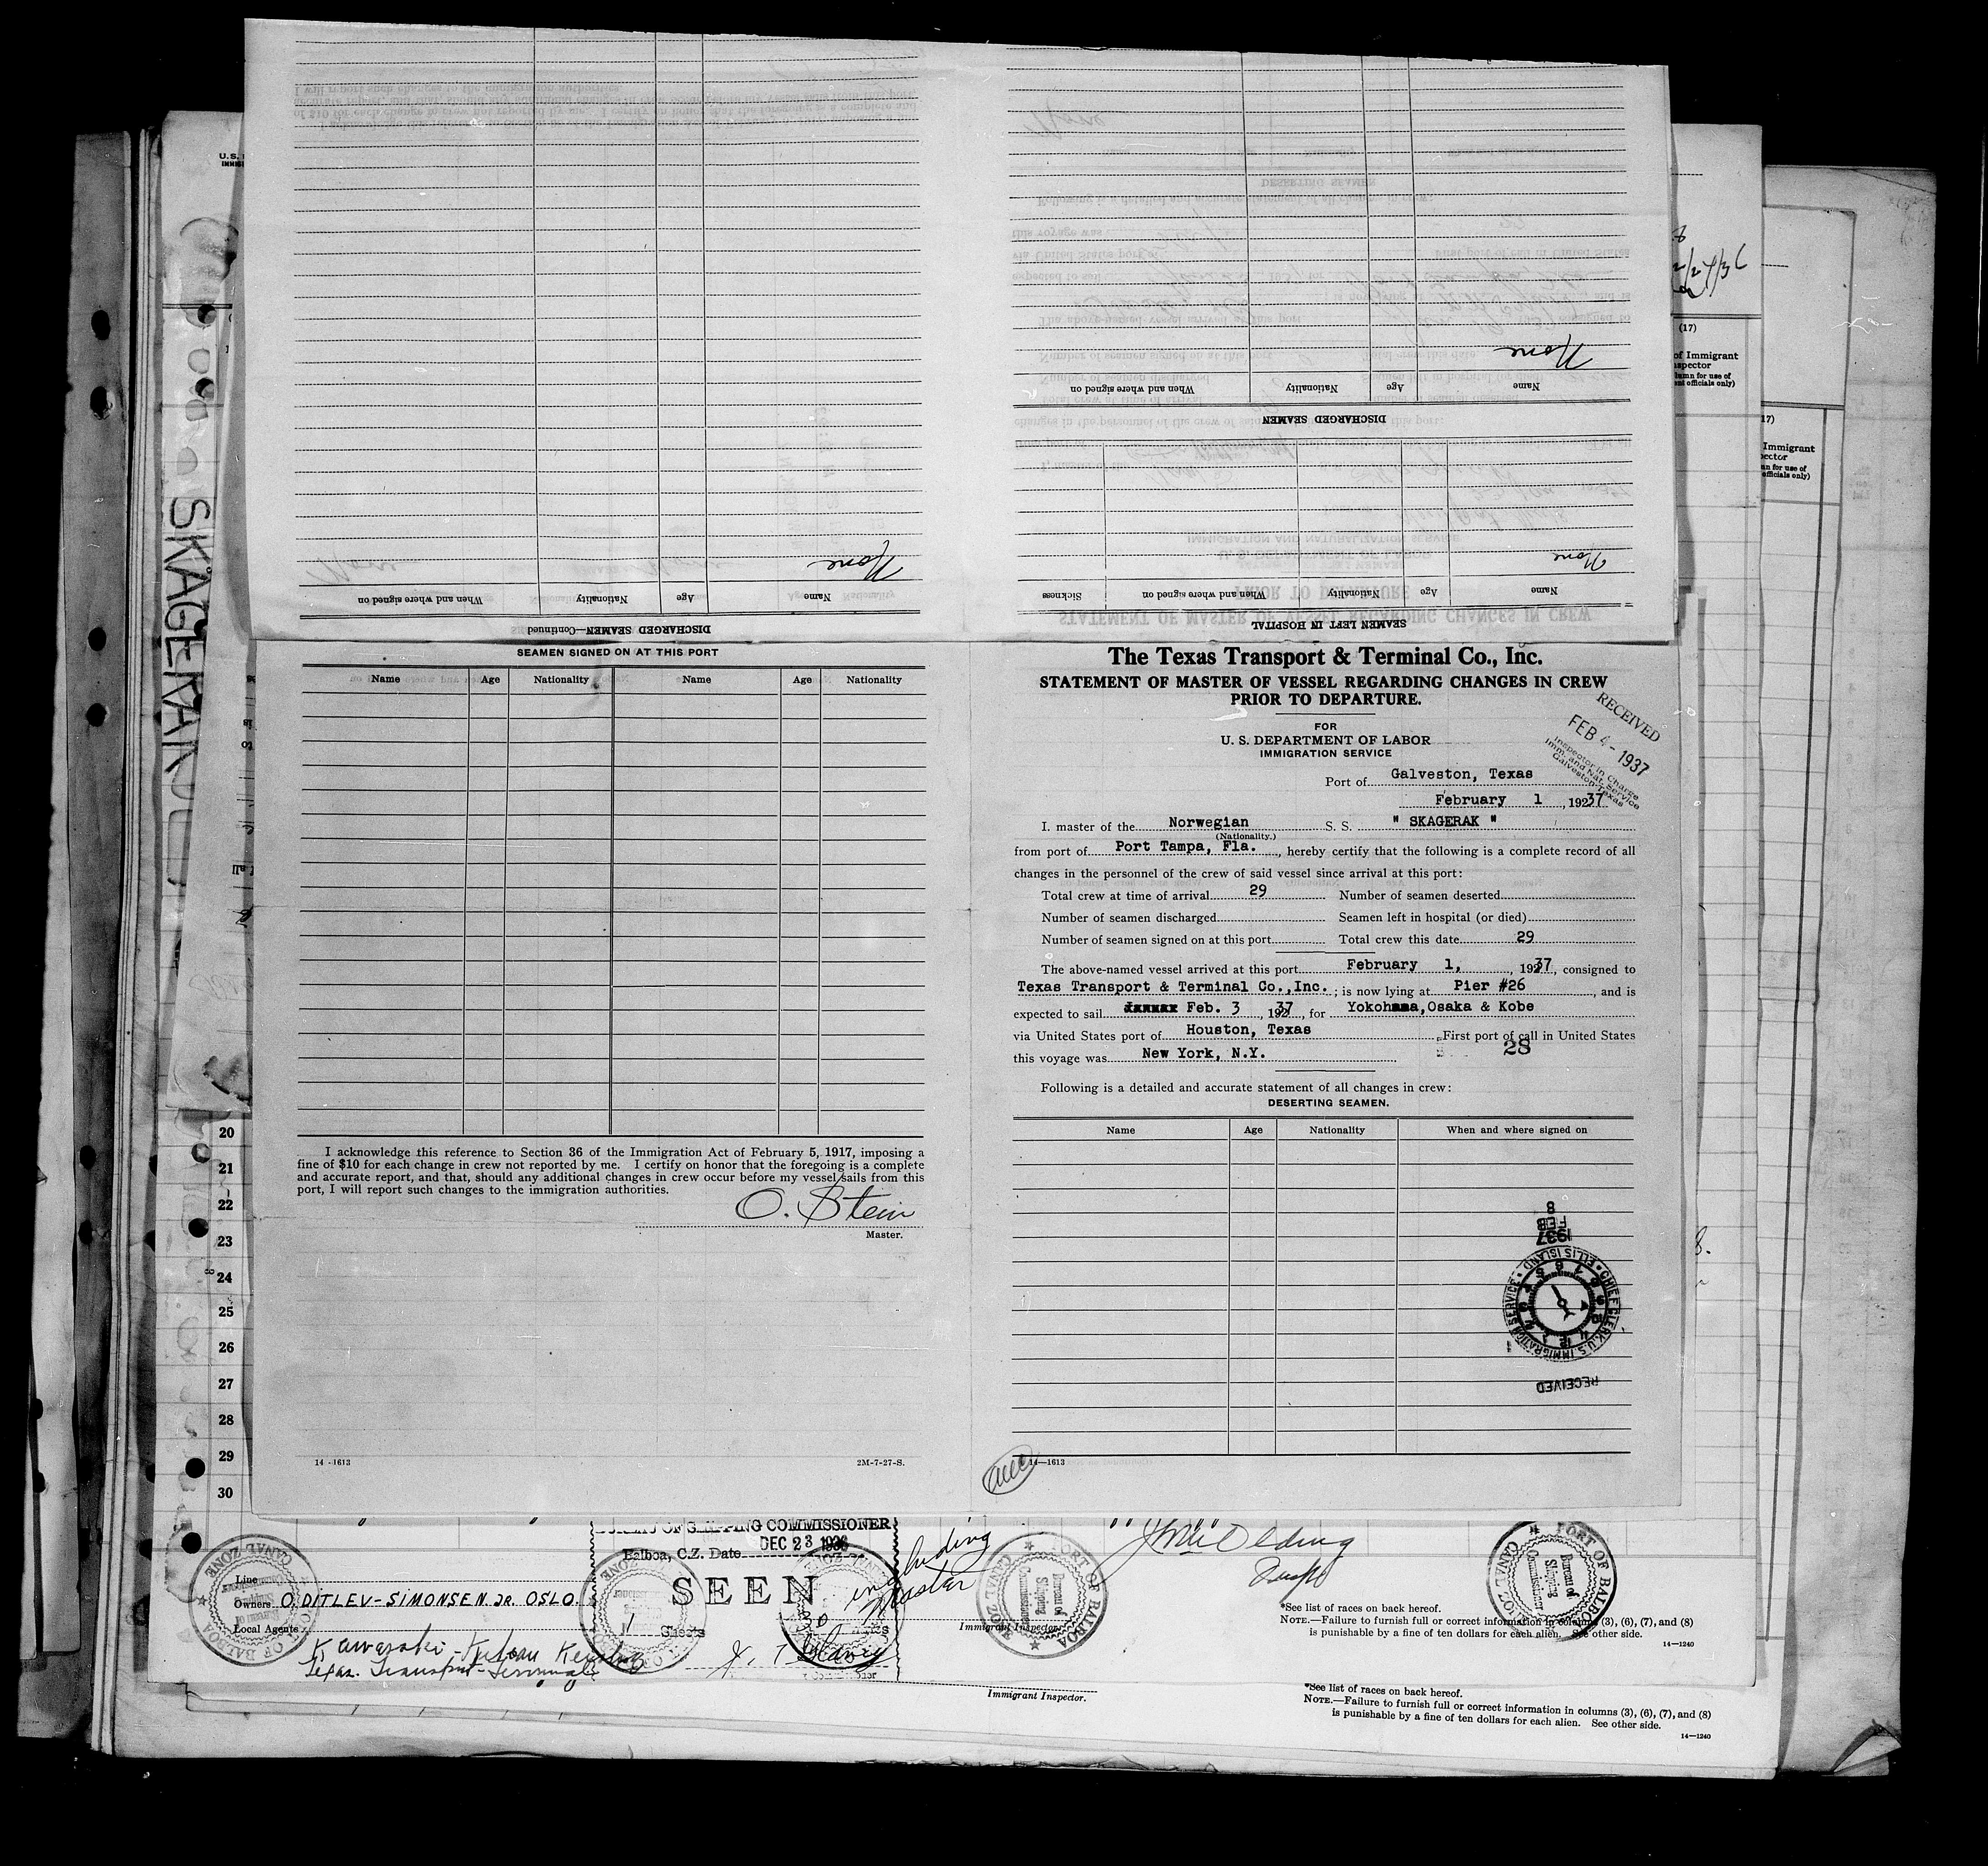 U.S.
SKAGERAK
DISCHARGED SEAMEN—Continued
Name
Age
Nationality
When and where signed on
None
SEAMEN LEFT IN HOSPITAL
Name
Age
Nationality
When and where signed on
Sickness
None
DISCHARGED SEAMEN
Name
Age
Nationality
When and where signed on
None
2/24/36
(17)
of Immigrant
SEAMEN SIGNED ON AT THIS PORT
Name Age Nationality Name Age Nationality
I acknowledge this reference to Section 36 of the Immigration Act of February 5, 1917, imposing a
fine of $10 for each change in crew not reported by me. I certify on honor that the foregoing is a complete
and accurate report, and that, should any additional changes in crew occur before my vessel sails from this
port, I will report such changes to the immigration authorities.
O. Stein
Master.
14-1613
2M-7-27-S.
The Texas Transport & Terminal Co., Inc.
STATEMENT OF MASTER OF VESSEL REGARDING CHANGES IN CREW
PRIOR TO DEPARTURE.
FOR
U. S. DEPARTMENT OF LABOR
IMMIGRATION SERVICE
RECEIVED
FEB 4 - 1937
Inspector in Charge
Imm. and Nat. Service
Galveston Texas
Port of Galveston, Texas
February 1, 192 37
I. master of the Norwegian S. S. " SKAGERAK "
(Nationality.)
from port of Port Tampa, Fla., hereby certify that the following is a complete record of all
changes in the personnel of the crew of said vessel since arrival at this port:
Total crew at time of arrival 29 Number of seamen deserted
Number of seamen discharged Seamen left in hospital (or died)
Number of seamen signed on at this port Total crew this date 29
The above-named vessel arrived at this port February 1, 192 37, consigned to
Texas Transport & Terminal Co.,Inc. ; is now lying at Pier #26, and is
expected to sail Feb. 3, 192 37, for Yokohama,Osaka & Kobe
via United States port of Houston, Texas First port of call in United States
this voyage was New York, N.Y. 28
Following is a detailed and accurate statement of all changes in crew:
DESERTING SEAMEN.
Name Age Nationality When and where signed on
1937
FEB
8
CHIEF CLERK, U.S. IMMIGRATION SERVICE • ELLIS ISLAND •
RECEIVED
14—1613
20
21
22
23
24
25
26
27
28
29
30
BUREAU OF SHIPPING COMMISSIONER
Balboa, C.Z. Date DEC 23 1936
SEEN
including
master
Line
Owners O. DITLEV-SIMONSEN JR. OSLO.
Local Agents
Kawasaki
Texas Transport - Terminal
PORT OF BALBOA
CANAL ZONE
Bureau of
Shipping
Commissioner
Immigrant Inspector.
*See list of races on back hereof.
NOTE.—Failure to furnish full or correct information in columns (3), (6), (7), and (8)
is punishable by a fine of ten dollars for each alien. See other side.
14—1240
Immigrant Inspector.
*See list of races on back hereof.
NOTE.—Failure to furnish full or correct information in columns (3), (6), (7), and (8)
is punishable by a fine of ten dollars for each alien. See other side.
14—1240